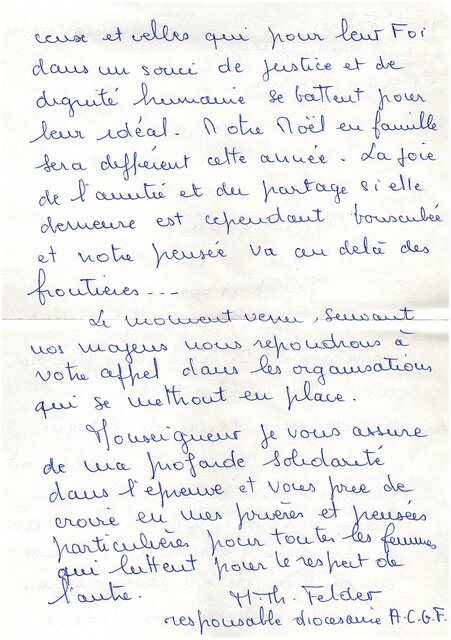 ceux et celles qui pour leur Foi
dans un souci de justice et de
dignité humaine se battent pour
leur idéal. Notre Noël en famille
sera différent cette année. La joie
de l'amitié et du partage si elle
demeure est cependant bousculée
et notre pensée va au delà des
frontières ---
Le moment venu, suivant
nos moyens nous repondrons à
votre appel dans les organisations
qui se mettront en place.
Monseigneur je vous assure
de ma profonde solidarité
dans l'épreuve et vous prie de
croire en mes prières et pensées
particulières pour toutes les femmes
qui luttent pour le respect de
l'autre. M.Th. Felder
responsable diocesaine A.C.G.F.